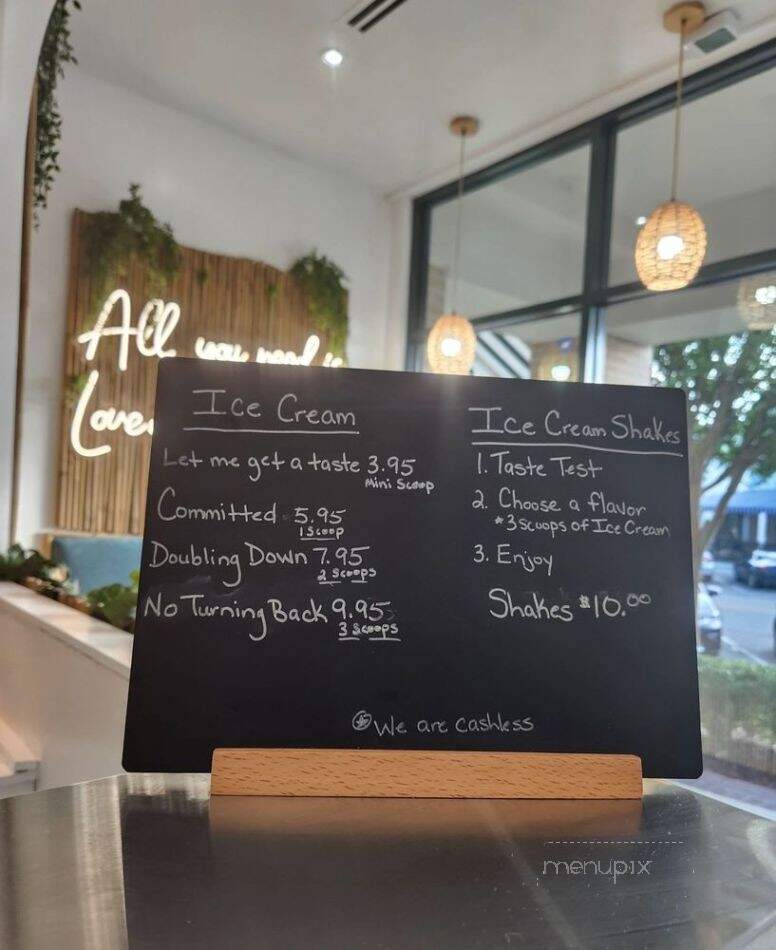 All you need is
Love
Ice Cream
Let me get a taste 3.95
Mini Scoop
Committed 5.95
1 Scoop
Doubling Down 7.95
2 Scoops
No Turning Back 9.95
3 Scoops
Ice Cream Shakes
1. Taste Test
2. Choose a flavor
*3 scoops of Ice Cream
3. Enjoy
Shakes $10.00
We are cashless
menupix